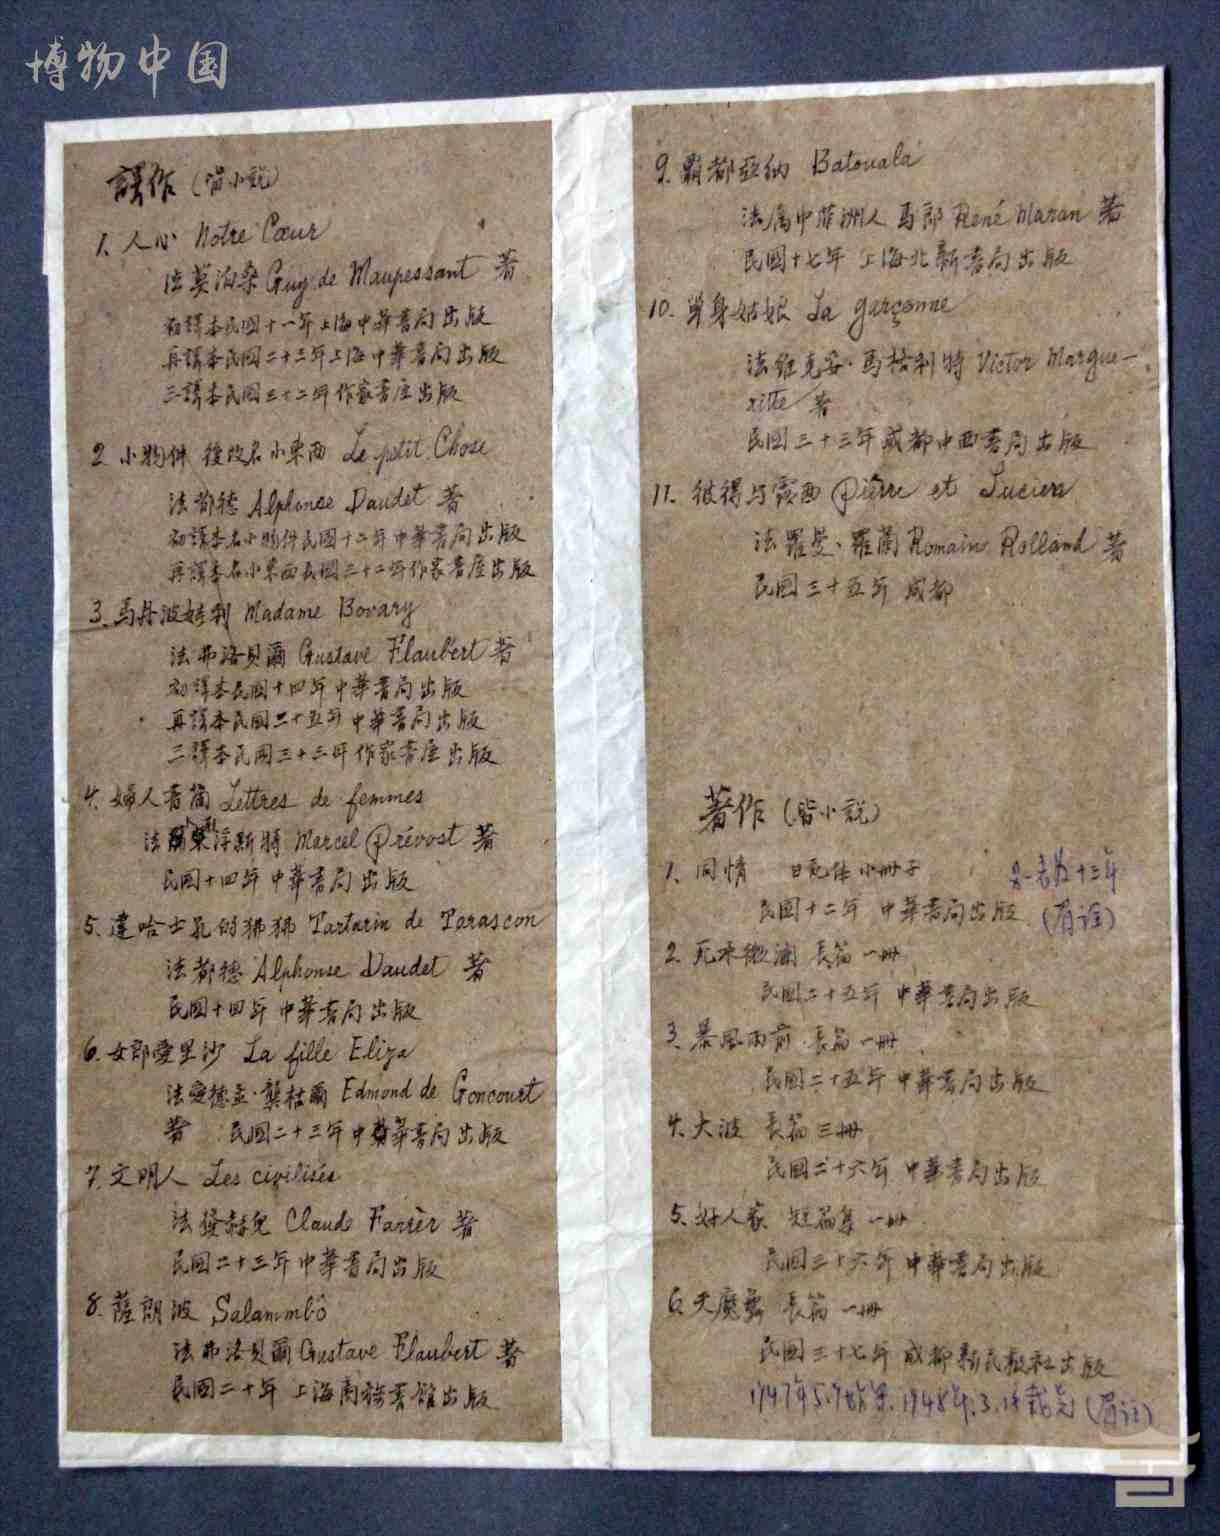 博物中国
譯作(皆小說)
1. 人心 Notre Cœur
法莫泊桑 Guy de Maupessant 著
初譯本民國十一年上海中華書局出版
再譯本民國二十三年上海中華書局出版
三譯本民國三十二年作家書屋出版
2. 小物件 後改名小東西 Le petit Chose
法都德 Alphonse Daudet 著
初譯本名小物件民國十二年中華書局出版
再譯本名小東西民國三十二年作家書屋出版
3. 馬丹波娃利 Madame Bovary
法弗洛貝爾 Gustave Flaubert 著
初譯本民國十四年中華書局出版
再譯本民國二十五年中華書局出版
三譯本民國三十三年作家書屋出版
4. 婦人書簡 Lettres de femmes
法 浮斯特 Marcel Prévost 著
民國十四年中華書局出版
5. 達哈士孔的狒狒 Tartarin de Tarascon
法都德 Alphonse Daudet 著
民國十四年中華書局出版
6. 女郎愛里沙 La fille Eliza
法愛德孟·龔枯爾 Edmond de Goncourt
著 民國二十三年中華書局出版
7. 文明人 Les civilisés
法發赫兒 Claude Farrèr 著
民國二十三年中華書局出版
8. 薩朗波 Salammbô
法弗洛貝爾 Gustave Flaubert 著
民國二十年 上海商務書館出版
9. 霸都亞納 Batouala
法屬中菲洲人 馬郎 René Maran 著
民國十七年 上海北新書局出版
10. 單身姑娘 La garçonne
法維克妥·馬格利特 Victor Margue-
ritte 著
民國三十三年成都中西書局出版
11. 彼得与露西 Pierre et Luciers
法羅曼·羅蘭 Romain Rolland 著
民國三十五年 成都
著作(皆小說)
1. 同情 日記体小冊子 十三年
民國十二年 中華書局出版 (眉注)
2. 死水微瀾 長篇一冊
民國二十五年 中華書局出版
3. 暴風雨前 長篇一冊
民國二十五年 中華書局出版
4. 大波 長篇三冊
民國二十六年 中華書局出版
5. 好人家 短篇集一冊
民國三十六年 中華書局出版
6. 天魔舞 長篇一冊
民國三十七年 成都新民報社出版
1947年5.7 1948年.3. 載完(眉注)